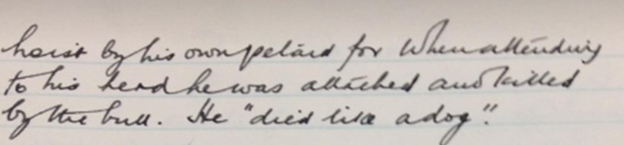 hoist by his own petard for when attending
to his herd he was attacked and killed
by the bull. He "died like a dog".